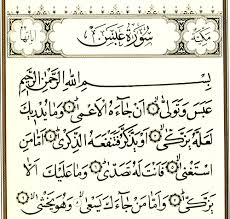 سُورَةُ عَبَسَ
مَكِّيَّة
بِسْمِ اللَّهِ الرَّحْمَٰنِ الرَّحِيمِ
عَبَسَ وَتَوَلَّىٰ ۝ أَن جَاءَهُ الْأَعْمَىٰ ۝ وَمَا يُدْرِيكَ
لَعَلَّهُ يَزَّكَّىٰ ۝ أَوْ يَذَّكَّرُ فَتَنفَعَهُ الذِّكْرَىٰ ۝ أَمَّا مَنِ
اسْتَغْنَىٰ ۝ فَأَنتَ لَهُ تَصَدَّىٰ ۝ وَمَا عَلَيْكَ أَلَّا
يَزَّكَّىٰ ۝ وَأَمَّا مَن جَاءَكَ يَسْعَىٰ ۝ وَهُوَ يَخْشَىٰ